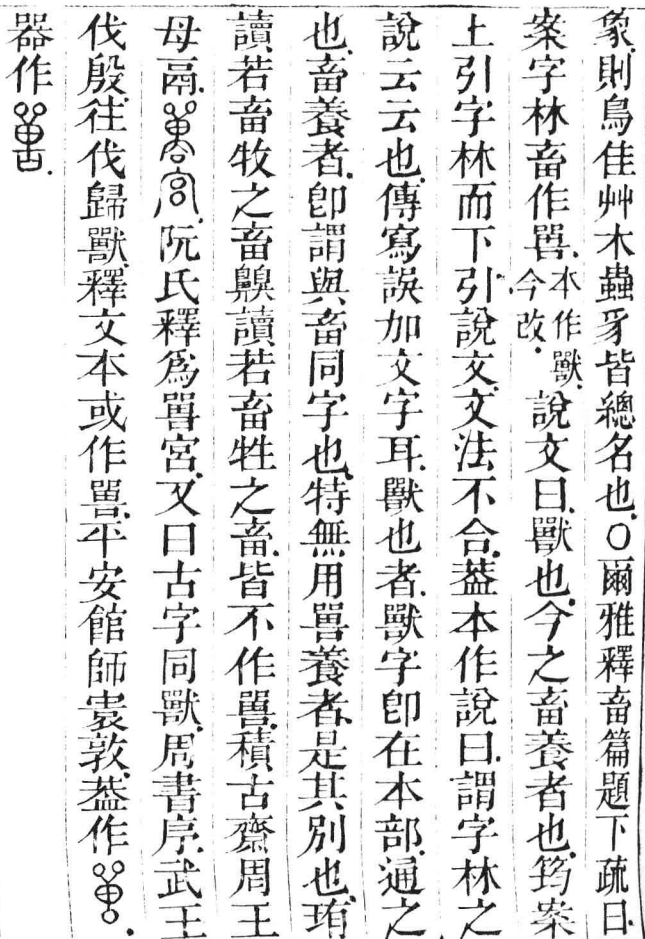 象.則鳥隹艸木蟲豸皆總名也.○爾雅釋畜篇題下疏曰.
案字林畜作嘼.本作獸.今改.說文曰.獸也.今之畜養者也.筠案
上引字林而下引說文.文法不合.葢本作說曰.謂字林之
說云云也.傳寫誤加文字耳.獸也者.獸字卽在本部.通之
也.畜養者.卽謂與畜同字也.特無用嘼養者.是其別也.珛
讀若畜牧之畜.齅讀若畜牲之畜.皆不作嘼.積古齋周王
母鬲.阮氏釋爲嘼宮.又曰古字同獸.周書序.武王
伐殷.往伐歸獸.釋文本或作嘼.平安館師寰敦.葢作.
器作.